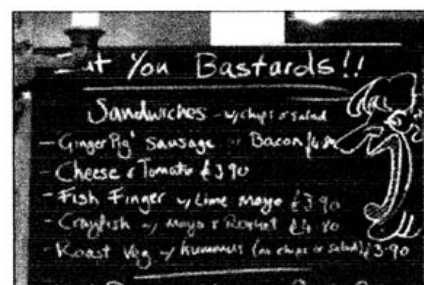 You Bastards!!
Sandwiches - w/ chips & salad
- Ginger Pig' Sausage or Bacon
- Cheese & Tomato £3.90
- Fish Finger w/ Lime Mayo £3.90
- Crayfish w/ Mayo & Rocket £4.80
- Roast Veg w/ hummus (no chips or salad) £3.90